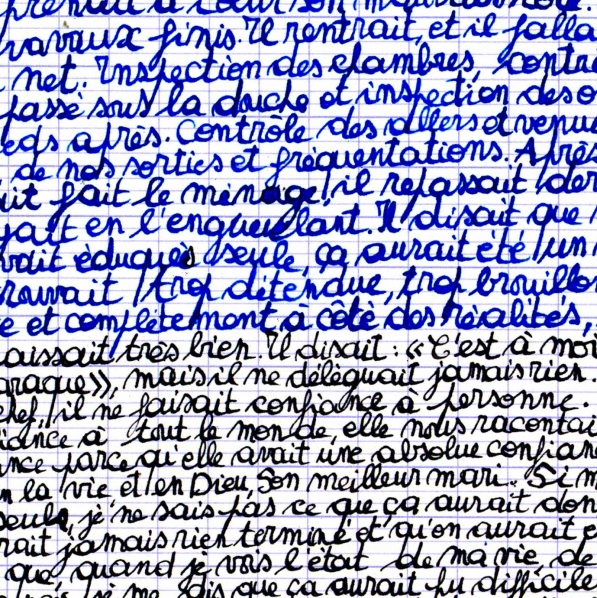 prenait à cœur son
travaux finis. Il rentrait, et il falla
net. Inspection des chambres, contrô
passé sous la douche et inspection des o
eds après. Contrôle des allers et venue
de nos sorties et fréquentations. Après
ait fait le ménage, il repassait der
yait en l'engueulant. Il disait que
vait éduqués seule, ça aurait été un
rouvait trop détendue, trop brouillo
e et complètement à côté des réalités,
aissait très bien. Il disait : «C'est à moi
araque», mais il ne déléguait jamais rien.
chef, il ne faisait confiance à personne.
iance à tout le monde, elle nous racontai
ance parce qu'elle avait une absolue confian
n la vie et en Dieu, son meilleur mari. Si m
seule, je ne sais pas ce que ça aurait don
rait jamais rien terminé et qu'on aurait e
que, quand je vois l'état de ma vie, de
je me dis que ça aurait pu difficile